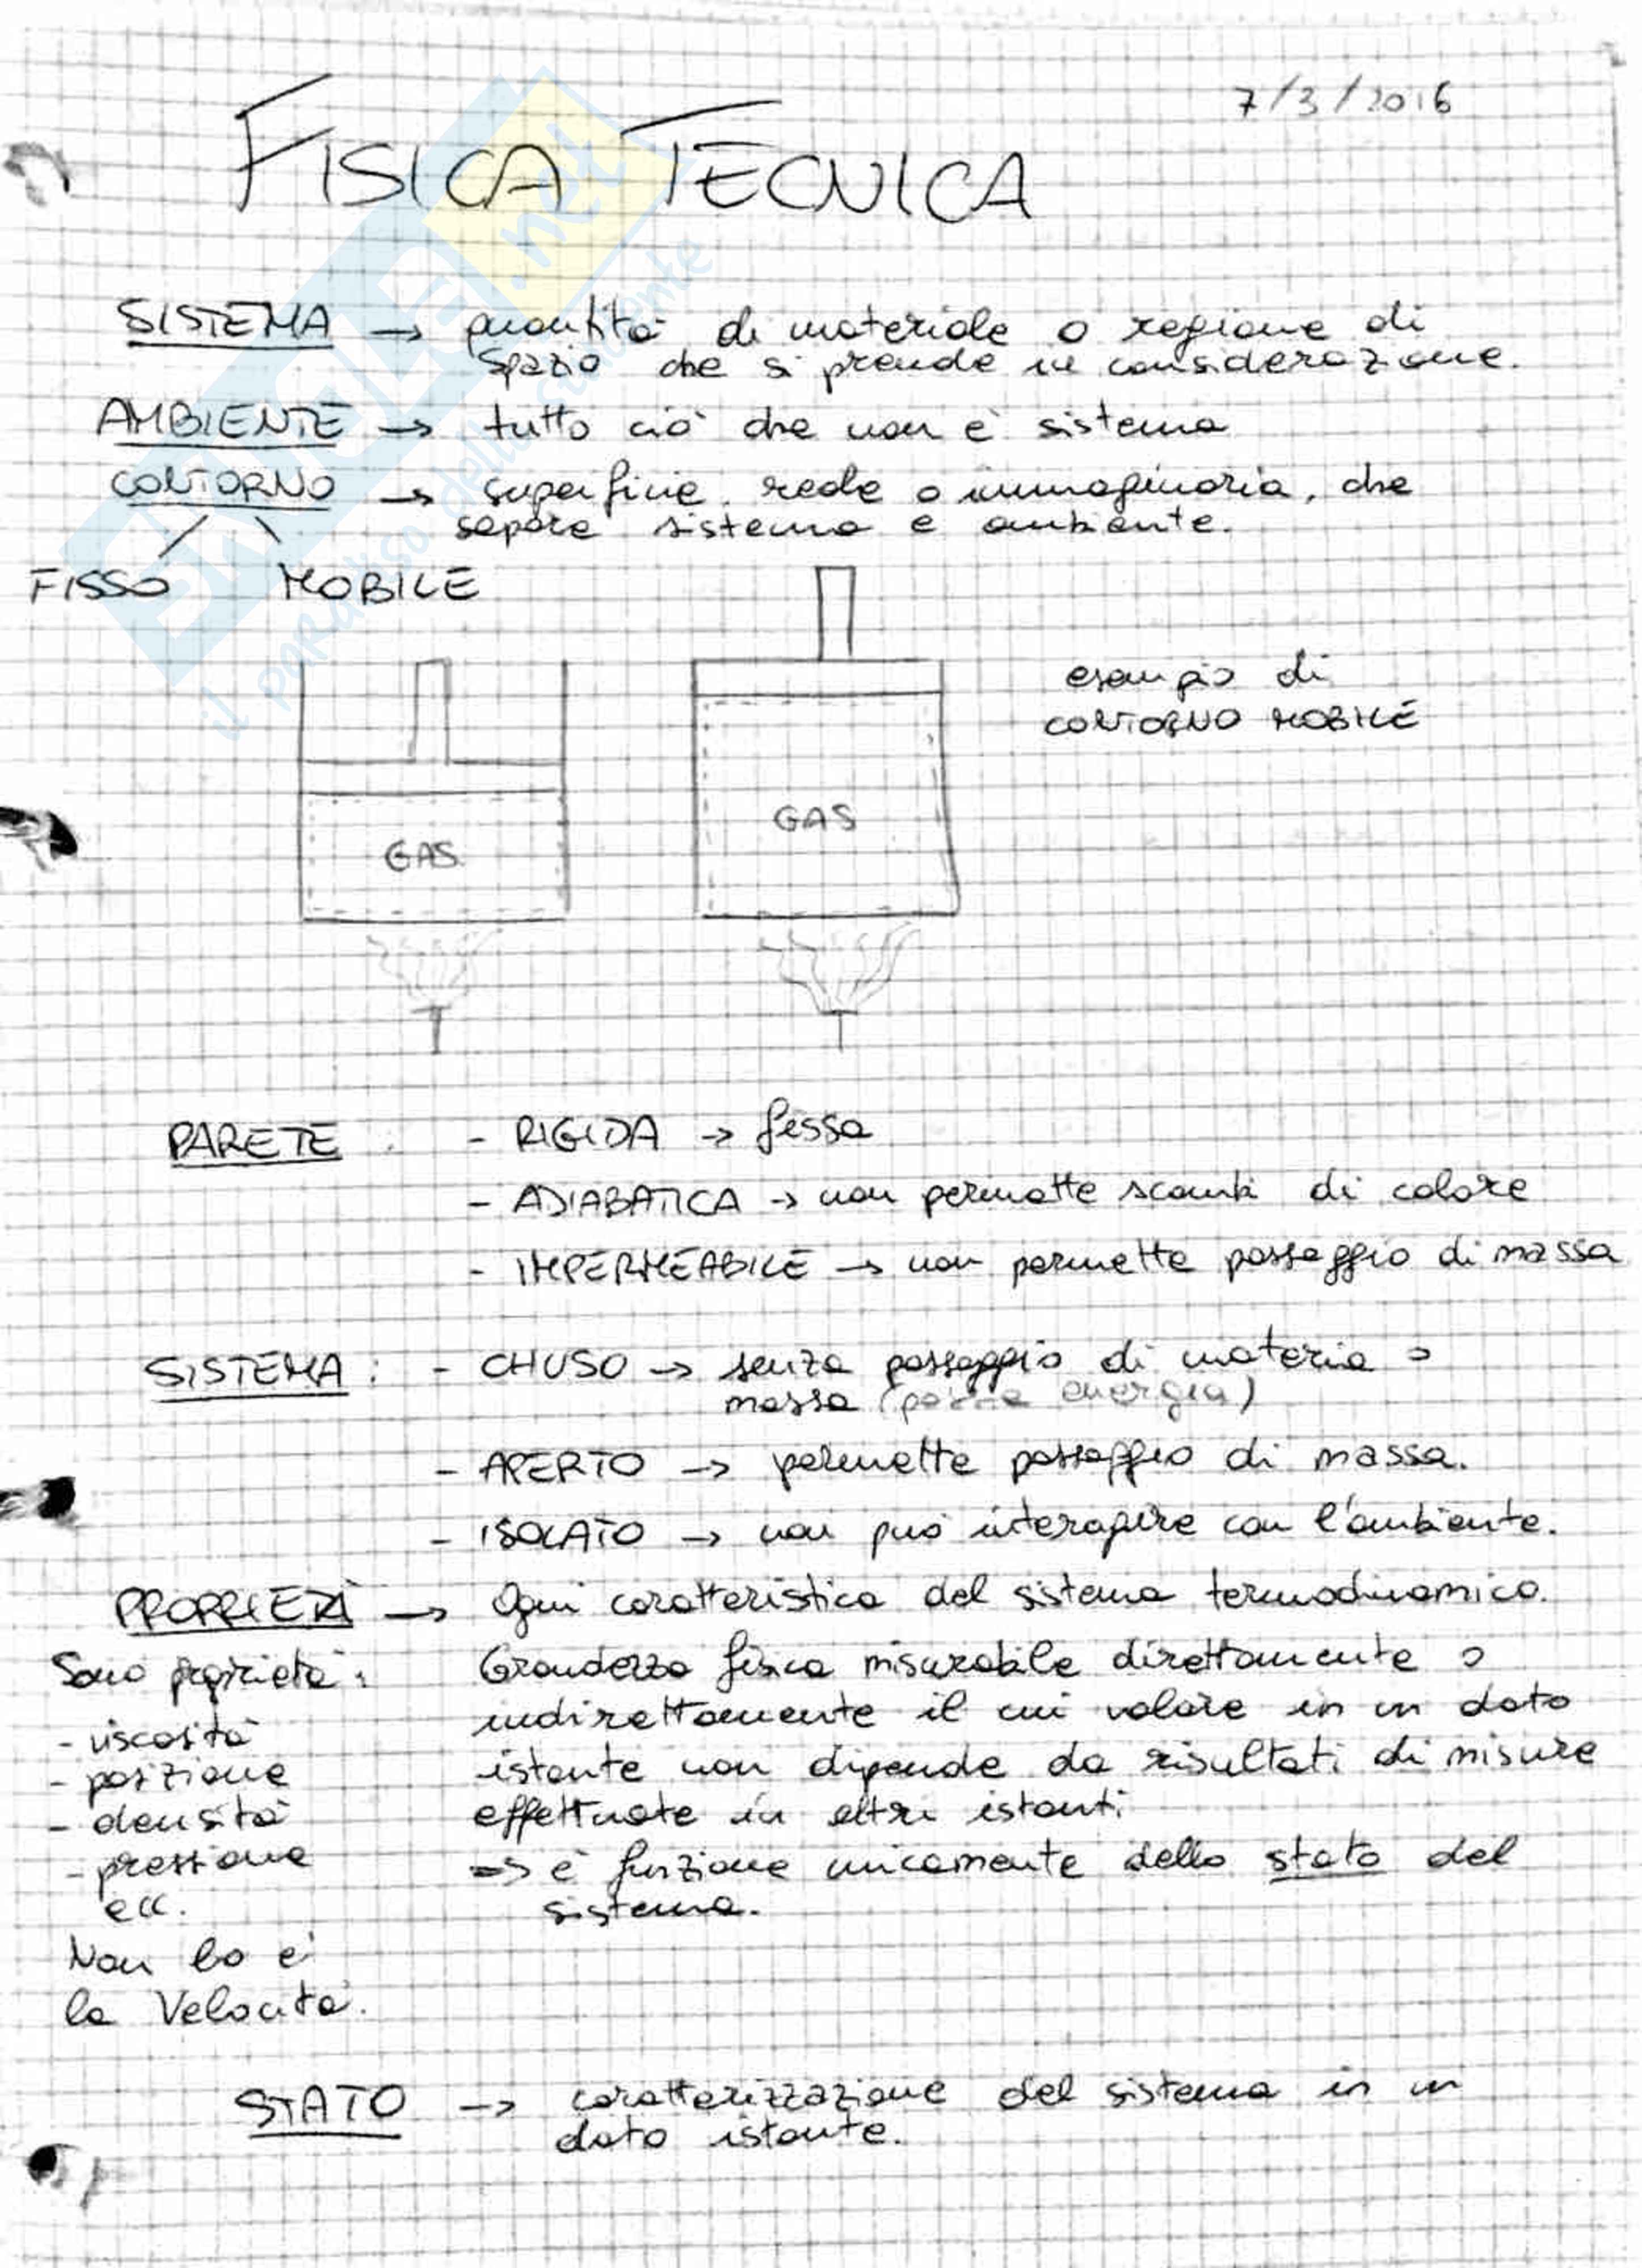 7/3/2016
FISICA TECNICA
SISTEMA → quantità di materiale o regione di
spazio che si prende in considerazione.
AMBIENTE → tutto ciò che non è sistema
CONTORNO → superficie, reale o immaginaria, che
separa sistema e ambiente.
FISSO MOBILE
esempio di
CONTORNO MOBILE
GAS
GAS
PARETE : - RIGIDA → fissa
- ADIABATICA → non permette scambi di calore
- IMPERMEABILE → non permette passaggio di massa
SISTEMA : - CHIUSO → senza passaggio di materia o
massa (passa energia)
- APERTO → permette passaggio di massa.
- ISOLATO → non può interagire con l'ambiente.
PROPRIETÀ → Ogni caratteristica del sistema termodinamico.
Grandezza fisica misurabile direttamente o
indirettamente il cui valore in un dato
istante non dipende da risultati di misure
effettuate in altri istanti
=> è funzione unicamente dello stato del
sistema.
Sono proprietà:
- viscosità
- posizione
- densità
- pressione
ecc.
Non lo è
la Velocità.
STATO → caratterizzazione del sistema in un
dato istante.
SKUOLA.net
il paradiso dello studente